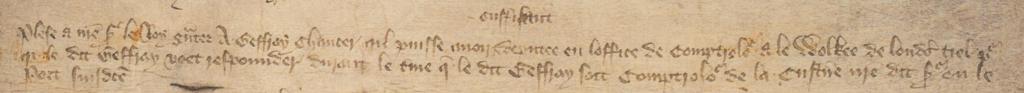 Plese a n͞re Sr le Roy g͞unter A Geffrey Chaucer qil puisse avoir deputee en loffice de Comptrolor a le Wolkee de londr tiel pr
qi le dit Geffray voet respoundre durant le t͞me q͞ le dit Geffray soit Comptrolor de la Custume n͞re dit Sr en le
Port suisdit